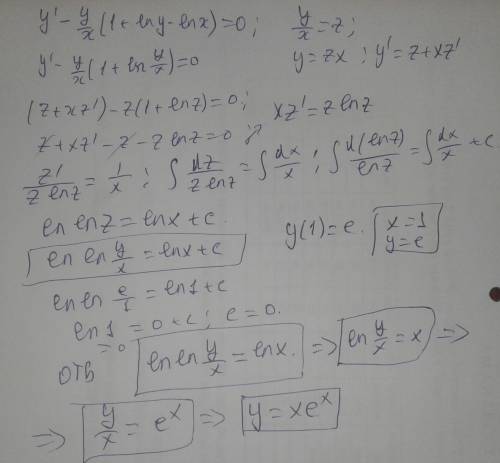 y' - y/x (1 + ln y - ln x) = 0;    y/x = z;
y' - y/x (1 + ln y/x) = 0    y = zx ; y' = z + xz'
(z + xz') - z(1 + ln z) = 0;    xz' = z ln z
z + xz' - z - z ln z = 0
z'/(z ln z) = 1/x ; ∫ dz/(z ln z) = ∫ dx/x ; ∫ d(ln z)/ln z = ∫ dx/x + c.
ln ln z = ln x + c.    y(1) = e.    x = 1
ln ln y/x = ln x + c    y = e
ln ln e/1 = ln 1 + c
ln 1 = 0 + c ; c = 0.
= 0
ОТВ    ln ln y/x = ln x. => ln y/x = x =>
=> y/x = e^x => y = xe^x